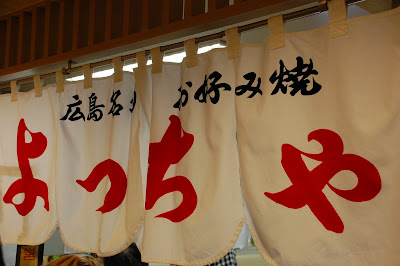 広島名物 お好み焼
よっちゃ